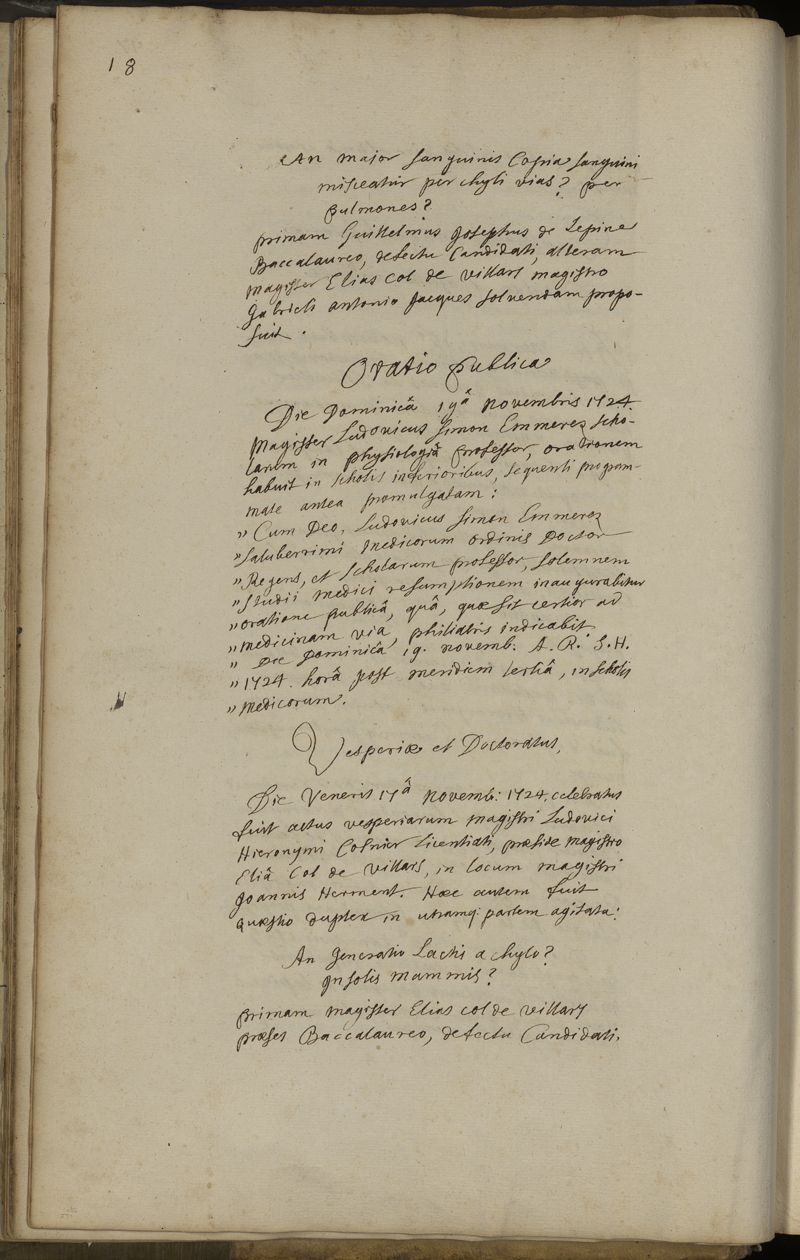 18
An major sanguinis Copia sanguini
misceatur per chyli vias? per
pulmones?
primam Guillelmus Josephus de Lepine
Baccalaureo, defectu Candidati, alteram
magister Elias Col de villars magistro
Gabrieli antonio Jacques solvendam propo-
suit.
Oratio publica
Die Dominicâ 19â novembris 1724.
Magister Ludovicus Simon Emmerez scho-
larum in physiologiâ professor, orationem
habuit in scholis inferioribus, sequenti program-
mate antea promulgatam:
" Cum Deo, Ludovicus Simon Emmerez
" saluberrimi medicorum ordinis Doctor
" Regens, et scholarum professor, solemnem
" studii medici resumptionem inaugurabitur
" oratione publicâ, quâ, quæ sit certior ad
" medicinam via, philiatris indicabit.
" Die Dominicâ 19. novemb. A. R. S. H.
" 1724. horâ post meridiem tertiâ, in scholis
" medicorum.
Vesperiæ et Doctoratus,
Die Veneris 17â novemb: 1724. celebratus
fuit actus vesperiarum magistri Ludovici
Hieronymi Cosnier Licentiati, præside magistro
Eliâ Col de villars, in locum magistri
Joannis Herment. Hæc autem fuit
quæstio duplex in utramq; partem agitata:
An Generatio Lactis a chylo?
In solis mammis?
primam magister Elias col de villars
præses Baccalaureo, defectu Candidati.